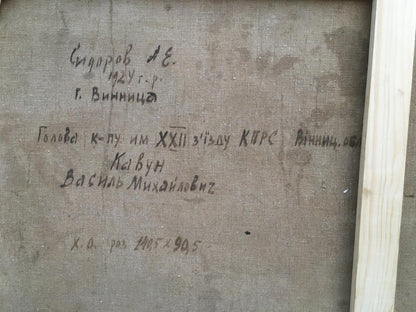 Сидоров А Е.
1924 г.р.
г. Винница
Голова к-пу им XXII з'їзду КПРС Вінниц. обл
Кавун
Василь Михайлович
х.о. роз 140,5 x 90,5